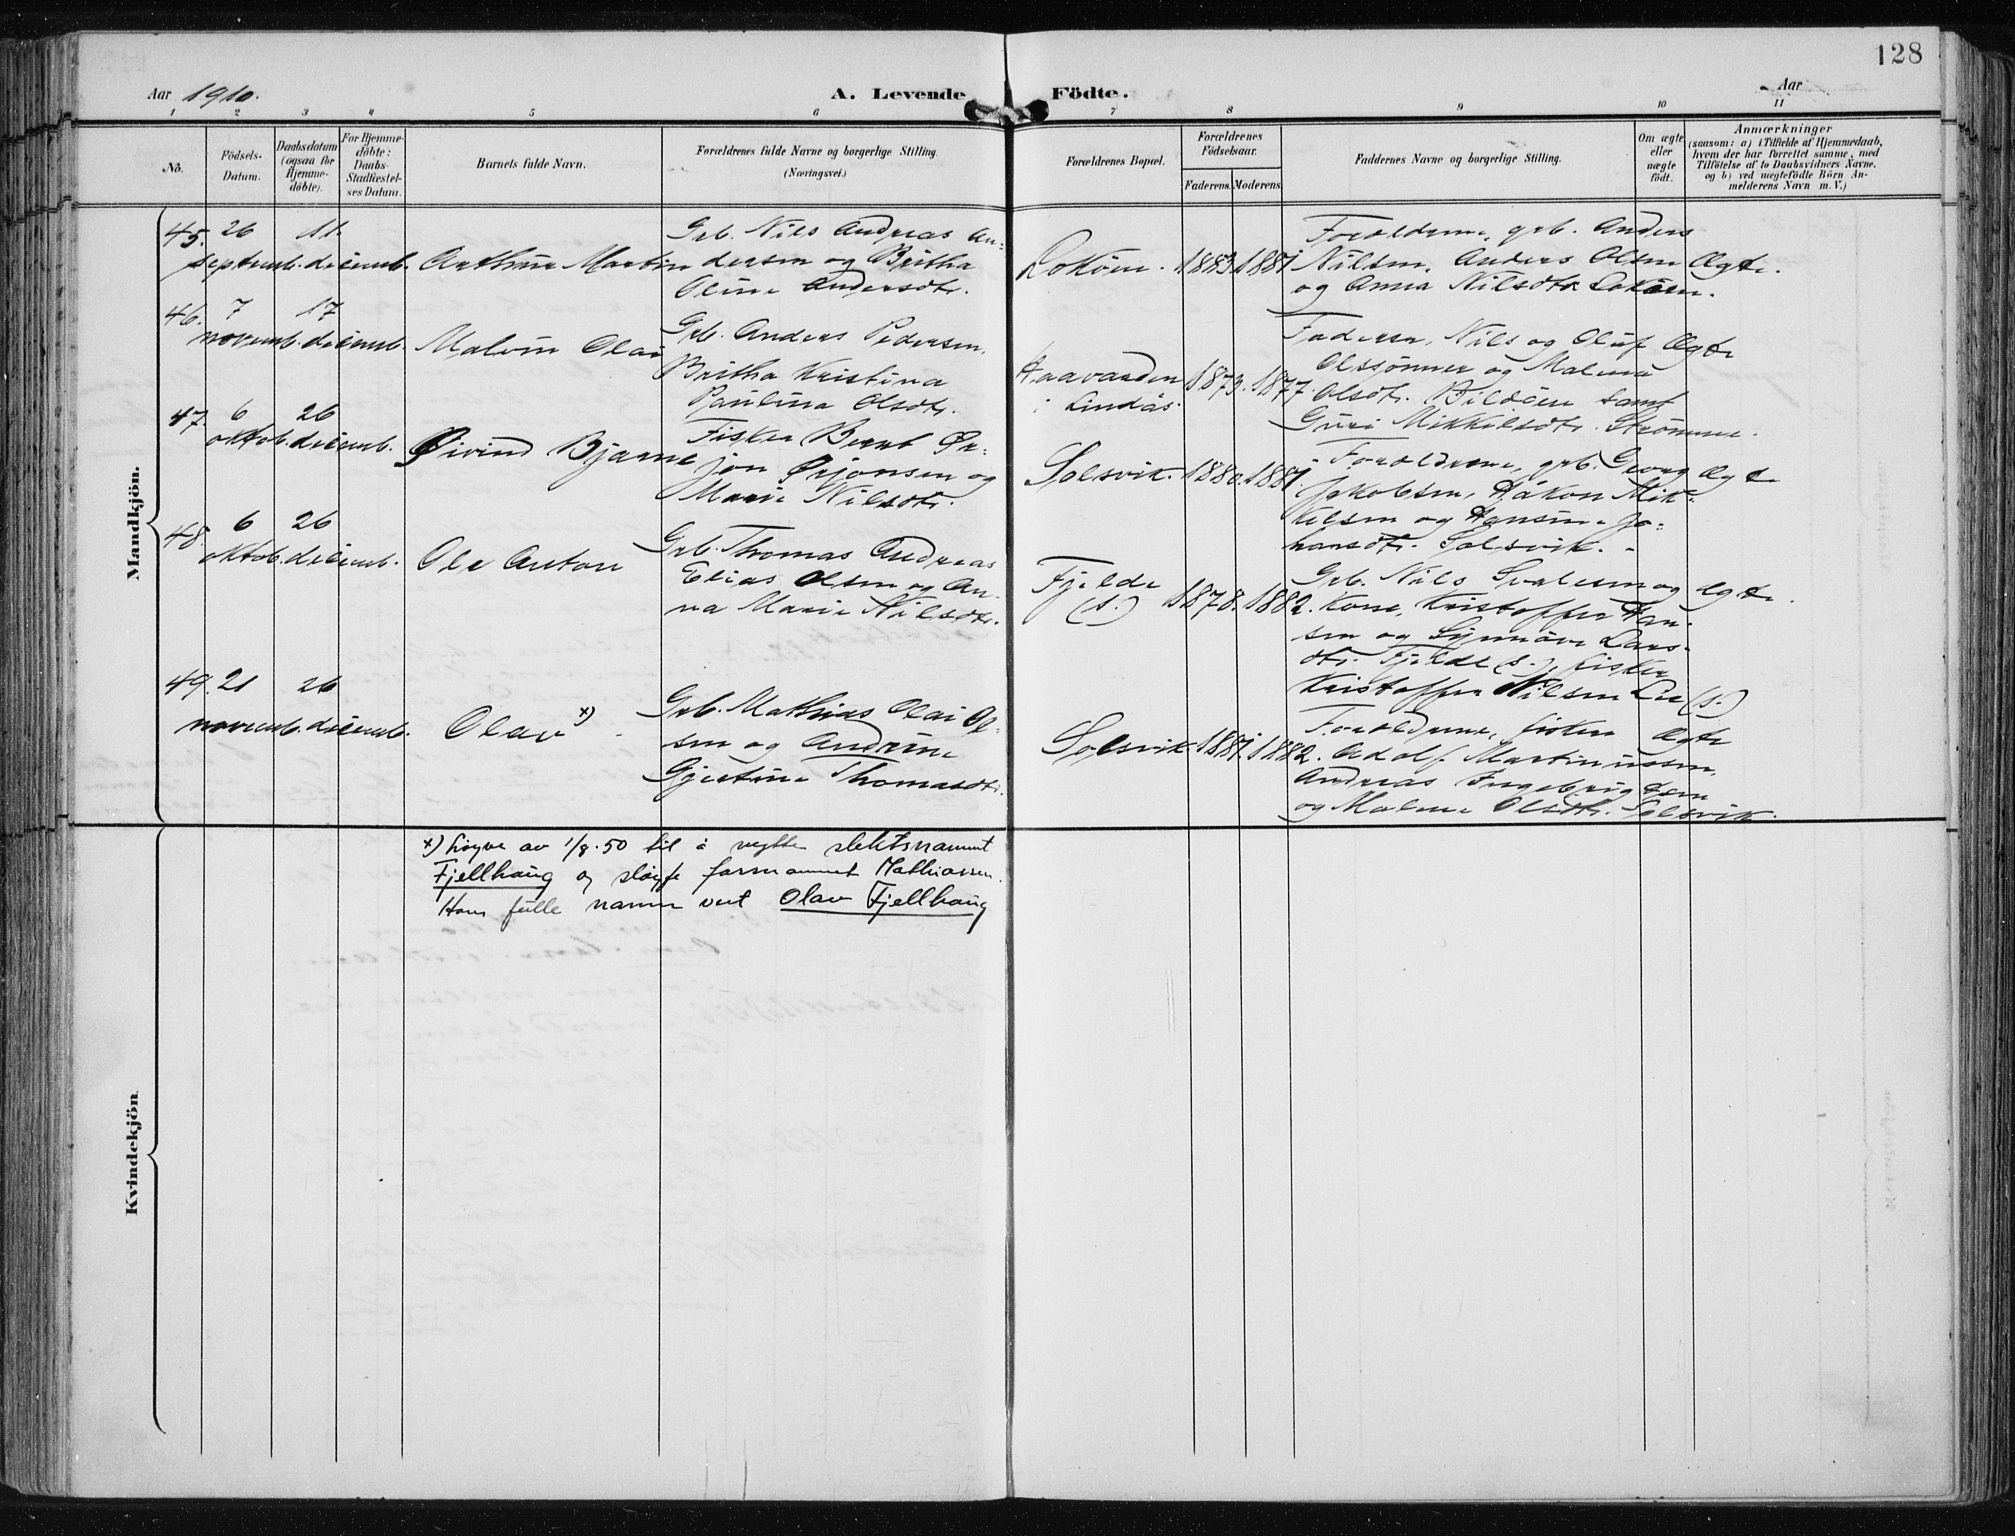 128
Aar 1910.
A. Levende Födte.
Aar
1 2 3 4 5 6 7 8 9 10 11
No.
Födsels-
Datum.
Daabsdatum
(ogsaa for
Hjemme-
döbte).
For Hjemme-
döbte:
Daabs-
Stadfæstel-
ses Datum.
Barnets fulde Navn.
Forældrenes fulde Navne og borgerlige Stilling.
(Næringsvei.)
Forældrenes Bopæl.
Forældrenes
Födselsaar.
Faderens.
Moderens.
Faddernes Navne og borgerlige Stilling.
Om ægte
eller
uægte
födt.
Anmærkninger
(saasom: a) i Tilfælde af Hjemmedaab,
hvem der har forrettet samme, med
Tilföielse af to Daabsvidners Navne.
og b) ved uægtefödte Börn An-
melderens Navn m. V.)
Mandkjön.
45. 26 septemb. 11. decemb. Arthur Martin
Grb. Nils Andreas An-
dersen og Britha
Oline Andersdtr.
Lokøen. 1883. 1881.
Forældrene, grb. Anders
Nilsen, Anders Olsen
og Anna Nilsdtr. Lokøen.
Ægte.
46. 7 novemb. 17 decemb. Malvin Olai
Grb. Anders Pedersen,
Britha Kristina
Paulina Olsdtr.
Haavarden
i Lindås.
1873. 1877.
Faderen, Nils og Oluf
Olssønner og Malena
Olsdtr. Bildøen samt
Guri Mikkelsdtr. Strømme.
Ægte
47. 6 oktob. 26 decemb. Øivind Bjarne
Fisker Bernt Ør-
jan Ørjansen og
Marie Nilsdtr.
Solsvik. 1880. 1881.
Forældrene, grb. Georg
Jakobsen, Håkon Mik-
kelsen og Hansine Jo-
hansdtr. Solsvik.
Ægte
48. 6 oktob. 26 decemb. Ole Anton
Grb. Thomas Andreas
Elias Olsen og An-
na Marie Nilsdtr.
Fjelde
(s.)
1878. 1882.
Grb. Nils
og
Kone, Kristoffer Han-
sen og Synnøve Lars-
dtr. Fjelde (s.), fisker
Kristoffer Nilsen Lie (s.)
Ægte.
49. 21 novemb. 26 decemb. Olav x)
Grb. Mathias Olai Ol-
sen og Andrine
Gjertine Thomasdtr.
Solsvik. 1881. 1882.
Forældrene, fisker
Adolf Martinussen,
Andreas Ingebrigtsen
og Malene Olsdtr. Solsvik.
Ægte
x) Løyve av 1/8.50 til å nytte slektsnamnet
Fjellhaug og sløyfe farsnamnet Mathiassen.
Hans fulle namn vert Olav Fjellhaug
Kvindekjön